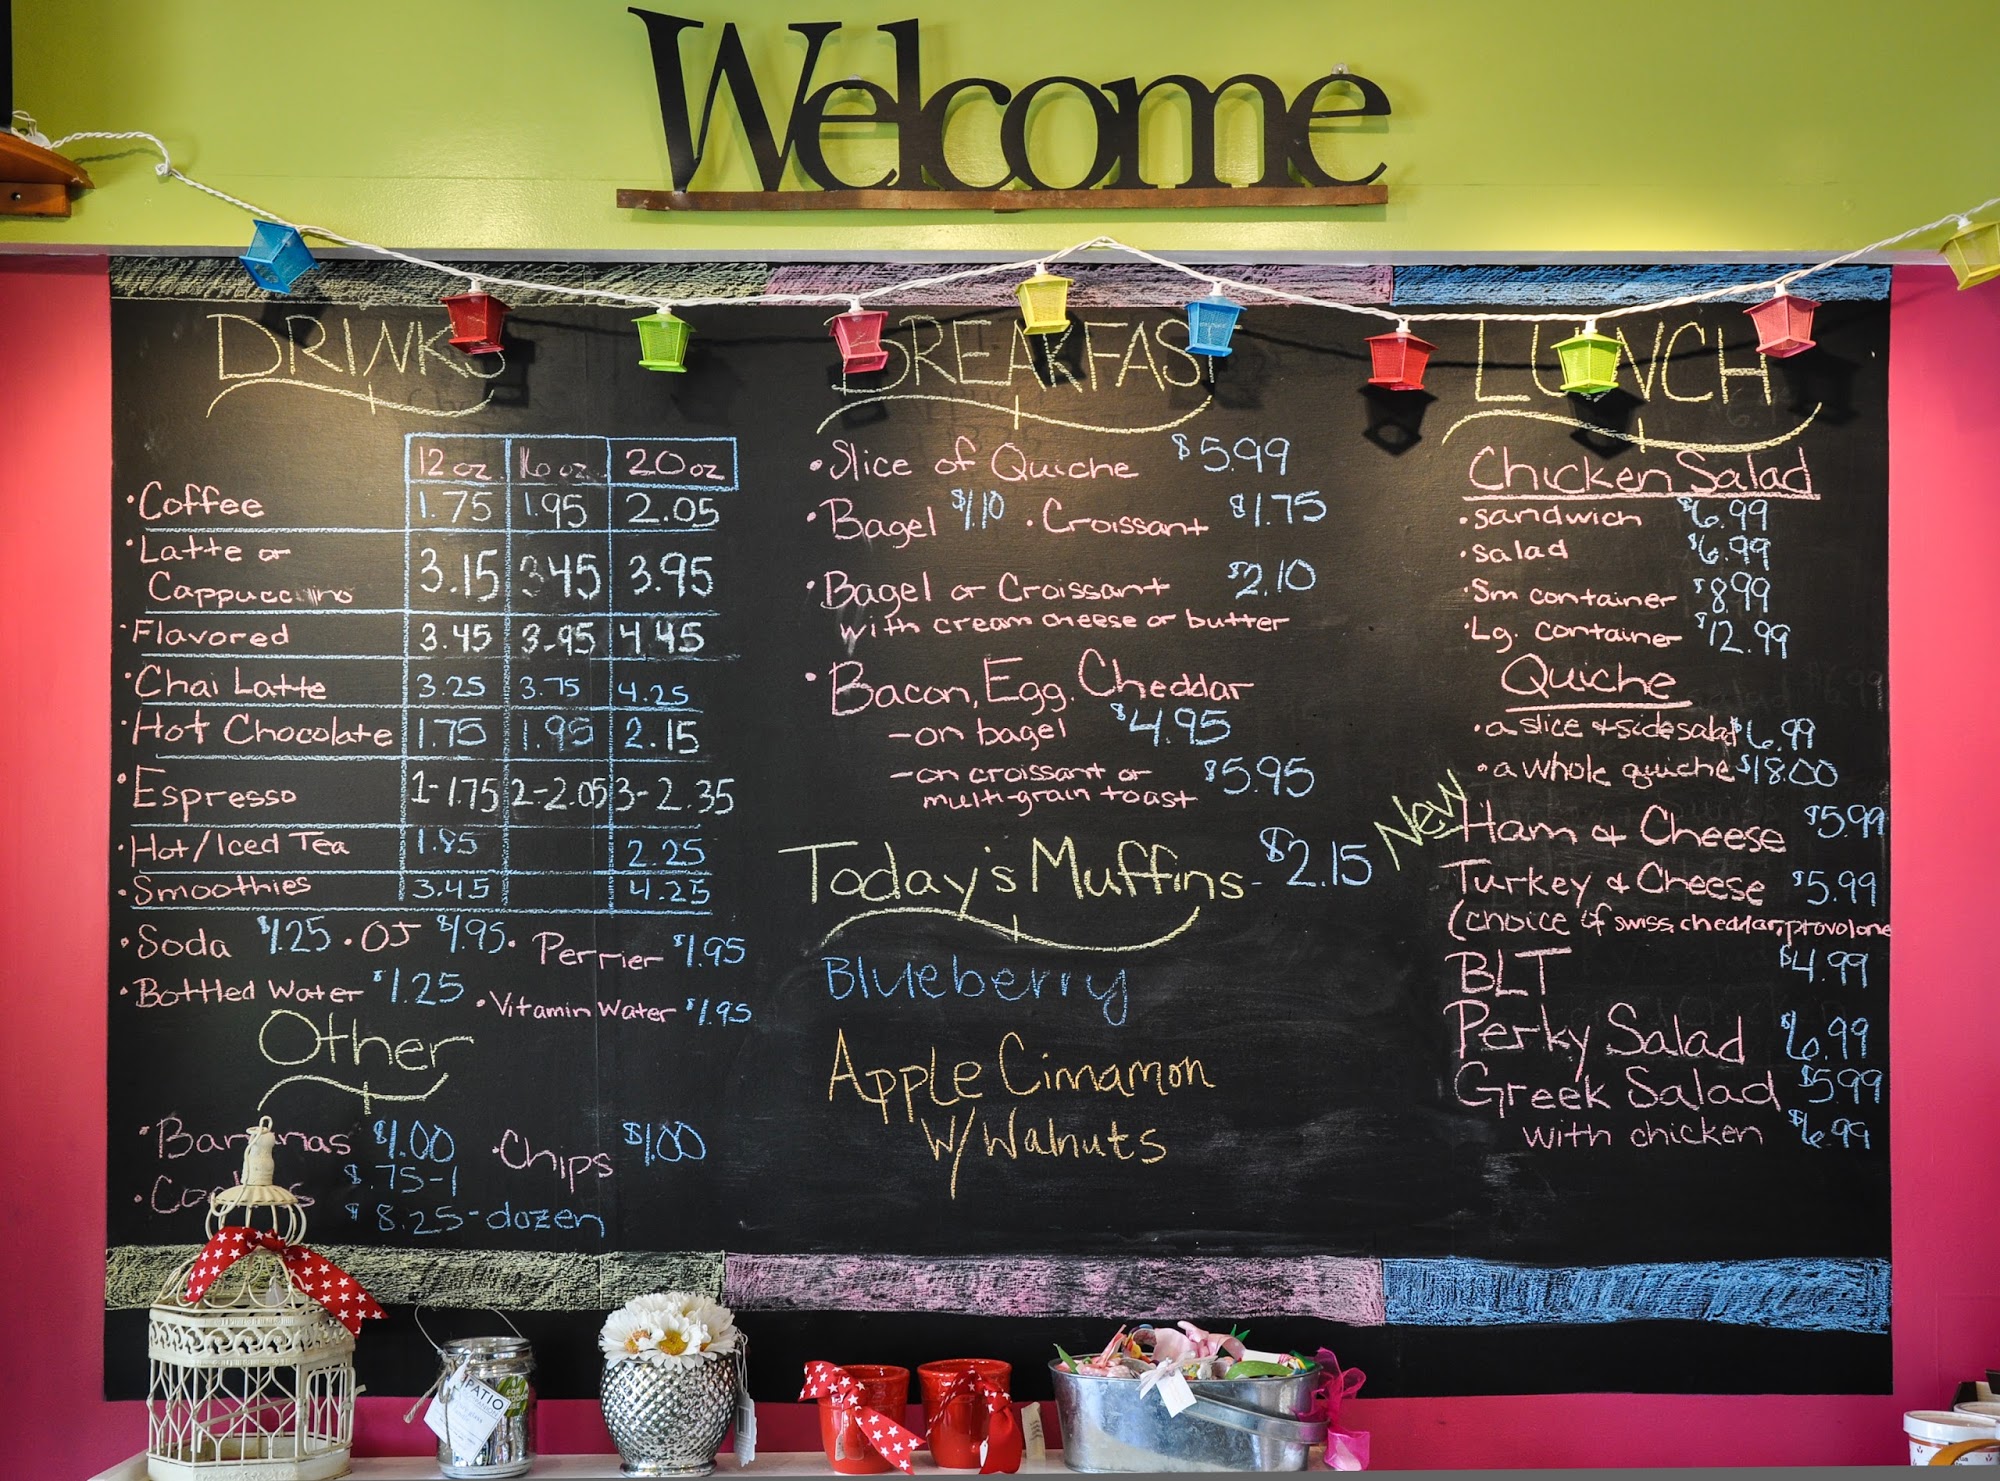 Welcome
DRINKS
12 oz. 16 oz. 20 oz
• Coffee 1.75 1.95 2.05
• Latte or
Cappuccino 3.15 3.45 3.95
• Flavored 3.45 3.95 4.45
• Chai Latte 3.25 3.75 4.25
• Hot Chocolate 1.75 1.95 2.15
• Espresso 1-1.75 2-2.05 3-2.35
• Hot/Iced Tea 1.85 2.25
• Smoothies 3.45 4.25
• Soda $1.25 • OJ $1.95 • Perrier $1.95
• Bottled Water $1.25 • Vitamin Water $1.95
Other
• Bananas $1.00 • Chips $1.00
• Cookies $.75-1
$8.25-dozen
BREAKFAST
• Slice of Quiche $5.99
• Bagel $1.10 • Croissant $1.75
• Bagel or Croissant $2.10
with cream cheese or butter
• Bacon, Egg, Cheddar
-on bagel $4.95
-on croissant or $5.95
multi-grain toast
Today's Muffins - $2.15
Blueberry
Apple Cinnamon
w/Walnuts
LUNCH
Chicken Salad
• sandwich $6.99
• salad $6.99
• Sm container $8.99
• Lg. container $12.99
Quiche
• a slice + side salad $6.99
• a whole quiche $18.00
New Ham & Cheese $5.99
Turkey & Cheese $5.99
(choice of swiss, cheddar, provolone
BLT $4.99
Perky Salad $6.99
Greek Salad $5.99
with chicken $6.99
PATIO